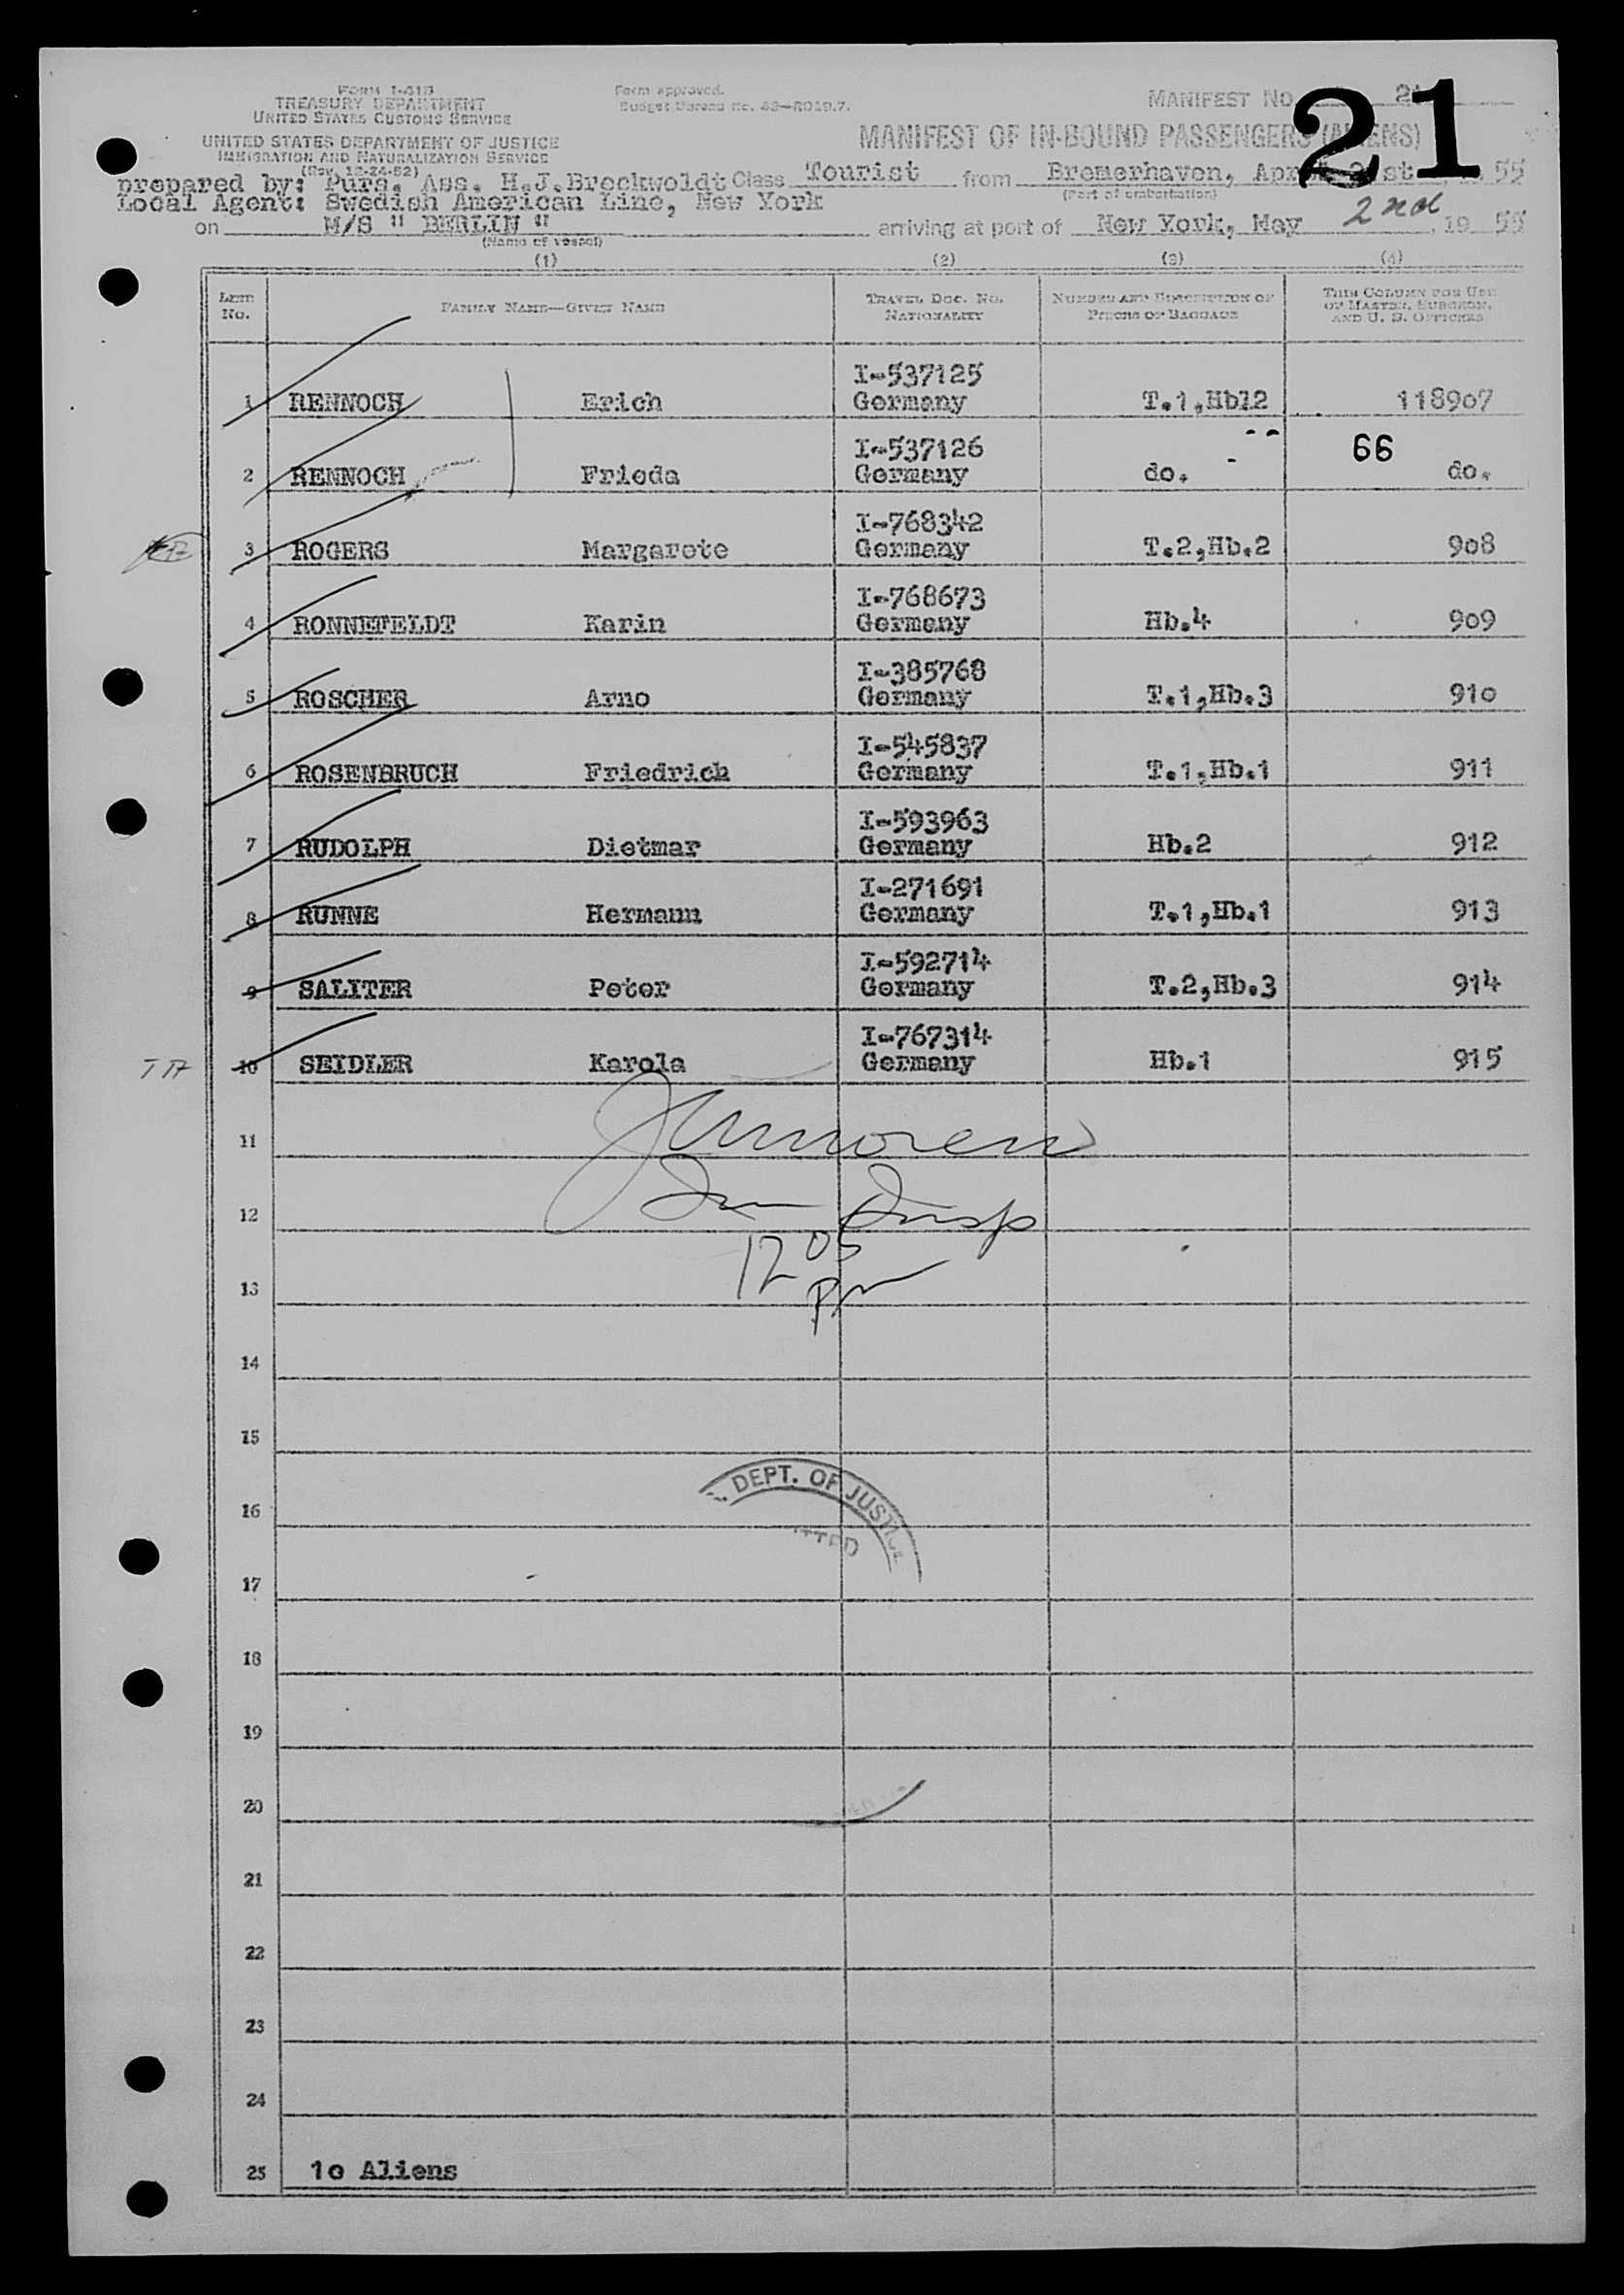 FORM I-418
TREASURY DEPARTMENT
UNITED STATES CUSTOMS SERVICE
UNITED STATES DEPARTMENT OF JUSTICE
IMMIGRATION AND NATURALIZATION SERVICE
(Rev. 12-24-52)
Form approved.
Budget Bureau No. 43—R019.7.
MANIFEST No.
21
MANIFEST OF IN-BOUND PASSENGERS (ALIENS)
prepared by: Purs. Ass. H.J.Brockwoldt Class Tourist from Bremerhaven, 55
(Port of embarkation)
Local Agent: Swedish American Line, New York
on M/S " BERLIN " arriving at port of New York, May 2nd, 19 55
(Name of vessel)
(1) (2) (3) (4)
LINE No. FAMILY NAME—GIVEN NAME TRAVEL DOC. No. NATIONALITY NUMBER AND DESCRIPTION OF PIECES OF BAGGAGE THIS COLUMN FOR USE OF MASTER, SURGEON, AND U. S. OFFICERS
I-537125
1 RENNOCH Erich Germany T.1,Hb12 118907
I-537126 66
2 RENNOCH Frieda Germany do. do.
I-768342
3 ROGERS Margarete Germany T.2,Hb.2 908
I-768673
4 RONNEFELDT Karin Germany Hb.4 909
I-385768
5 ROSCHER Arno Germany T.1,Hb.3 910
I-545837
6 ROSENBRUCH Friedrich Germany T.1,Hb.1 911
I-593963
7 RUDOLPH Dietmar Germany Hb.2 912
I-271691
8 RUNNE Hermann Germany T.1,Hb.1 913
I-592714
9 SALITER Peter Germany T.2,Hb.3 914
I-767314
10 SEIDLER Karola Germany Hb.1 915
11
12 Imm Insp
1205
13 pm
14
15
DEPT. OF JUSTICE
16
17
18
19
20
21
22
23
24
25 1o Aliens